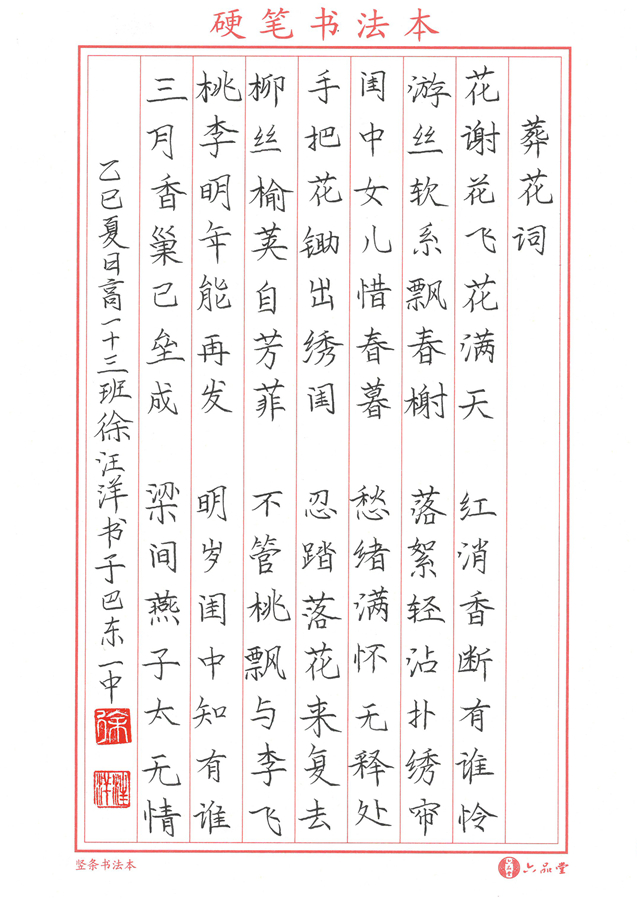 硬笔书法本
葬花词
花谢花飞花满天 红消香断有谁怜
游丝软系飘春榭 落絮轻沾扑绣帘
闺中女儿惜春暮 愁绪满怀无释处
手把花锄出绣闺 忍踏落花来复去
柳丝榆荚自芳菲 不管桃飘与李飞
桃李明年能再发 明岁闺中知有谁
三月香巢已垒成 梁间燕子太无情
乙巳夏日高一十三班徐汪洋书于巴东一中
徐
汪洋
竖条书法本
六品堂